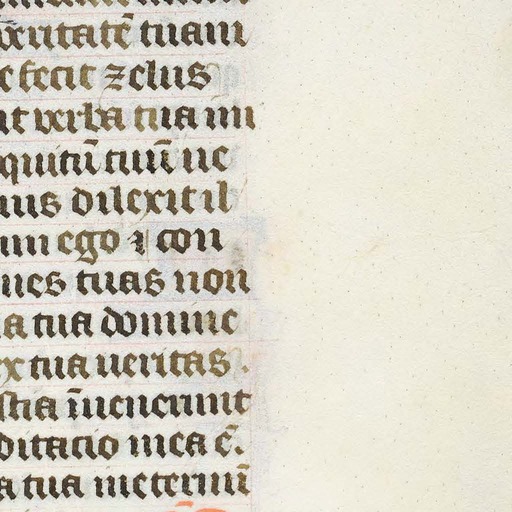 veritatē tuam
e fecit zelus
nt verba tua ini
quiū tuū ue
uus dilexit il
um ego ⁊ con
nes tuas non
ia tua domine
ex tua ueritas .
stia īuenerunt
ditacio mea ē.
a tua in eternū